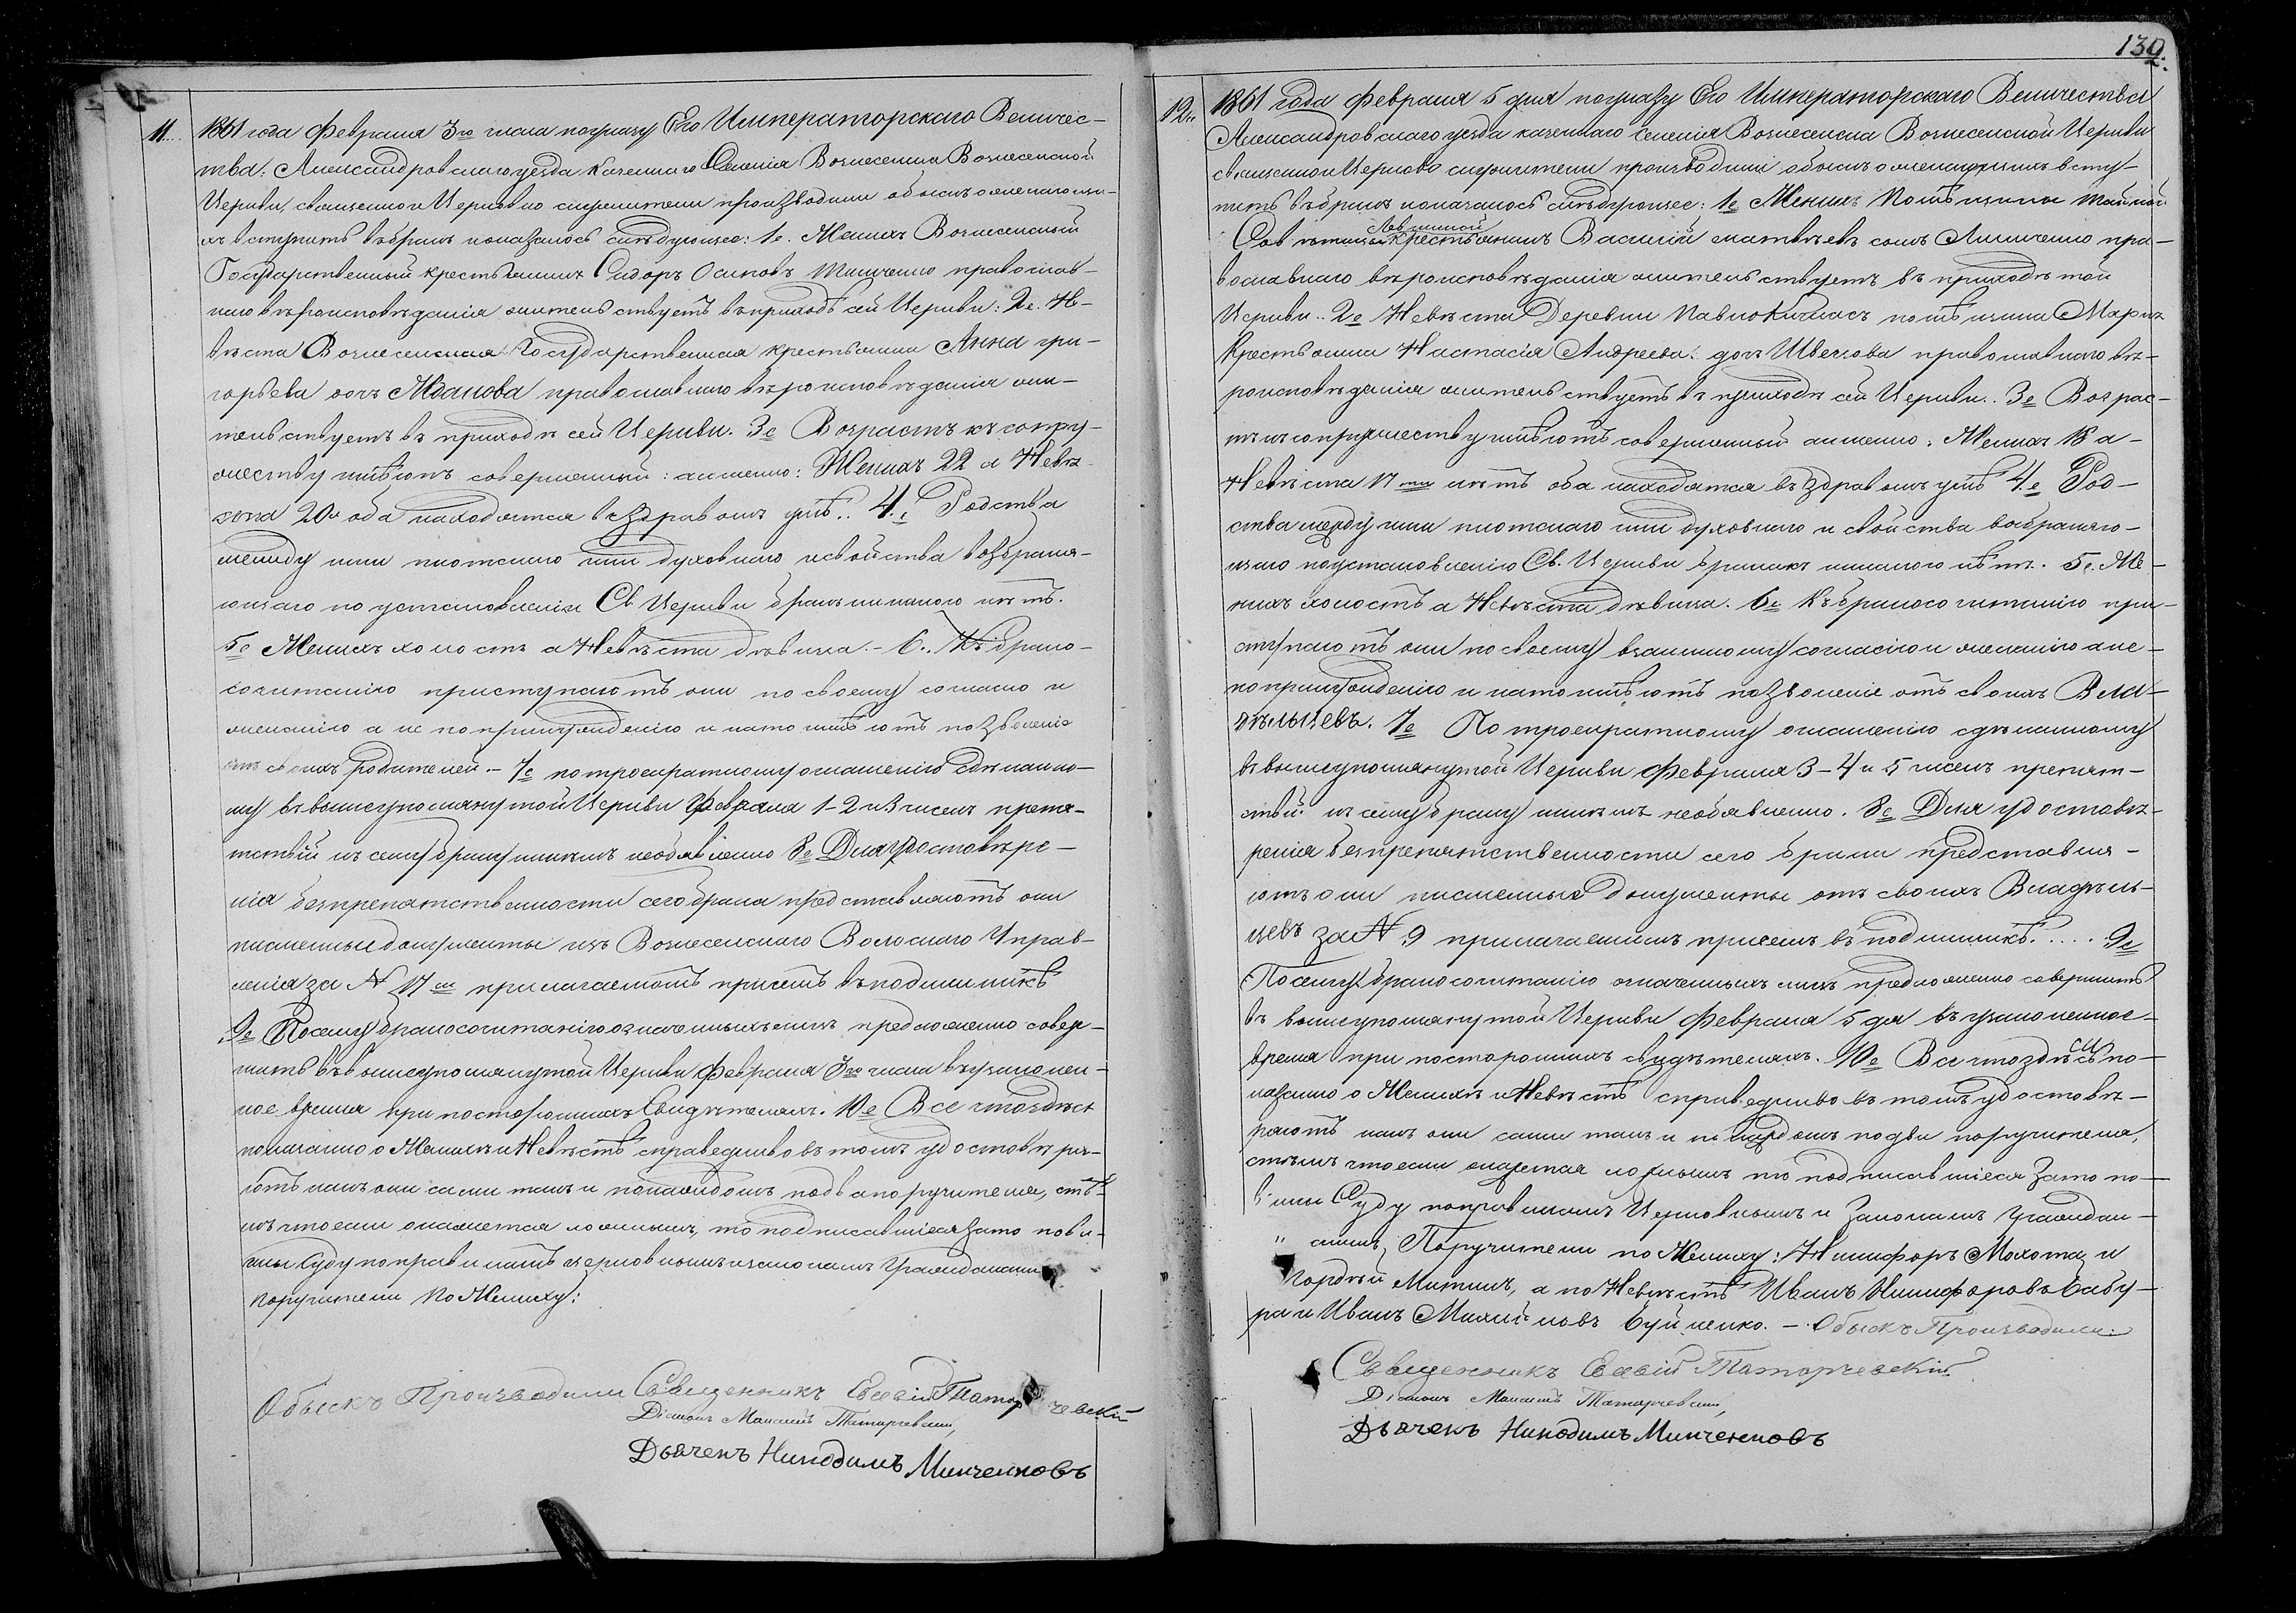 11.
1861 года Февраля 3го числа поуказу Его Императорскаго Величес-
тва: Александровскаго уезда Казеннаго Селенія Вознесенка Вознесенской
Церкви, священно и Церковно служители производили обыскъ о желающи-
хъ вступить въ бракъ и оказалось слѣдующее: 1е. Женихъ Вознесенскій
Государственный крестьянинъ Сидоръ Осиповъ православ-
наго вѣроисповѣданія жительствуетъ въ приходѣ сей Церкви: 2е. Не-
вѣста Вознесенская Государственная крестьянка Анна Гри-
горьева дочь Жданова православнаго вѣроисповѣданія жи-
тельствуетъ въ приходѣ сей Церкви. 3е Возрастъ къ супру-
жеству имѣютъ совершенный: а именно: Женихъ 22 а Невѣ-
ста 20и оба находятся въ здравомъ умѣ.. 4.е Родства
между ими плотскаго или духовнаго и свойства возбраня-
ющаго по установленію Св Церкви бракъ никакого нѣтъ.
5е Женихъ холостъ а Невѣста дѣвица. - 6.. Къ брако-
сочитанію приступаютъ они по своему согласію и
желанію а не по принужденію и на то имѣютъ позволеніе
отъ своихъ родителей. - 7е по троекратному оглашенію сдѣланно-
му въ вышеупомянутой Церкви Февраля 1-2 и 3 чиселъ препя-
тствій къ сему браку никемъ необявленно 8е Для удостовѣре-
нія безпрепятственности сего брака представляютъ они
писменные документы изъ Вознесенскаго Волоснаго Управ-
ленія за N 17м прилагаемомъ присемъ въ подлинникѣ
9е Посему бракосочитаніе означенныхъ лицъ предложенно совер-
шить въ вышеупомянутой Церкви Февраля 3го числа въ узаконен-
ное время при постороннихъ Свидѣтеляхъ. 10е Все что здѣсь
показанно о Женихѣ и Невѣстѣ справедливо въ томъ удостовѣря-
ютъ какъ они сами такъ и по каждомъ по два поручителя, стѣ-
мъ что если окажется ложнымъ, то подписавшіеся за то пови-
нны Суду по правиламъ церковнымъ и законамъ Гражданскимъ
поручители по Жениху:
Обыскъ Производили Священникъ Евѳвій Татарчевскій
Діаконъ Татарчевскій,
Дьячекъ Никодимъ Минченковъ
139.
12и
1861 года Февраля 5 дня поуказу Его Императорскаго Величества
Александровскаго уезда казеннаго Селенія Вознесенка Вознесенской Церкви
священно и Церковно служители производили обыскъ о желающихъ всту-
пить въ бракъ и оказалось слѣдующее: 1е Женихъ Помѣщика
крестьянинъ Василій Матвѣевъ сынъ пра-
вославнаго вѣроисповѣданія жительствуетъ въ приходѣ той
Церкви.. 2е Невѣста Деревни Павлокичкасъ помѣщика Маркъ
Крестьянка Настасія Андреева: дочь Швецова православнаго вѣ-
роисповѣданія жительствуетъ въ приходѣ сей Церкви.. 3е Возрас-
тъ къ супружеству имѣютъ совершенный а именно: Женихъ 18 а-
Невѣста 17ти лѣтъ оба находятся въ здравомъ умѣ 4.е Род-
ства между ими плотскаго или духовнаго и свойства возбраняю-
щаго по установленію Св. Церкви бракъ никакого нѣтъ. 5е. Же-
нихъ холостъ а Невѣста дѣвица. 6е Къ бракосочитанію при-
ступаютъ они по своему взаимному согласію и желанію а не-
по принужденію и на то имѣютъ позволеніе отъ своихъ Вла-
дѣльцевъ. 7е По троекратному оглашенію сдѣланному
въ вышеупомянутой Церкви Февраля 3-4 и 5 чиселъ препят-
ствій къ сему браку никемъ необявленно. 8е Для удостовѣ-
ренія безпрепятственности сего брака представля-
ютъ они писменные документы отъ своихъ Владѣль-
цевъ за N 9 прилагаемымъ присемъ въ подлинникѣ. .... 9е
Посему бракосочитанію означенныхъ лицъ предложенно совершить
въ вышеупомянутой Церкви Февраля 5 дня въ узаконенное-
время при постороннихъ свидѣтеляхъ. 10е Все что здѣсь по-
казанно о Женихѣ и Невѣстѣ справедливо въ томъ удостовѣ-
ряютъ какъ они сами такъ и по каждомъ по два поручителя,
стѣмъ что если окажется ложнымъ то подписавшіеся за то по-
винны Суду по правиламъ Церковнымъ и Законамъ Граждан-
" скимъ, Поручители по Жениху: Никифоръ Махота и
Гордѣй Митинъ, а по Невѣстѣ Иванъ Никифоровъ Сабу-
ра и Иванъ Михайловъ Буйленко. - Обыскъ Производили:
Священникъ Евѳвій Татарчевскій
Діаконъ Татарчевскій,
Дьячекъ Никодимъ Минченковъ